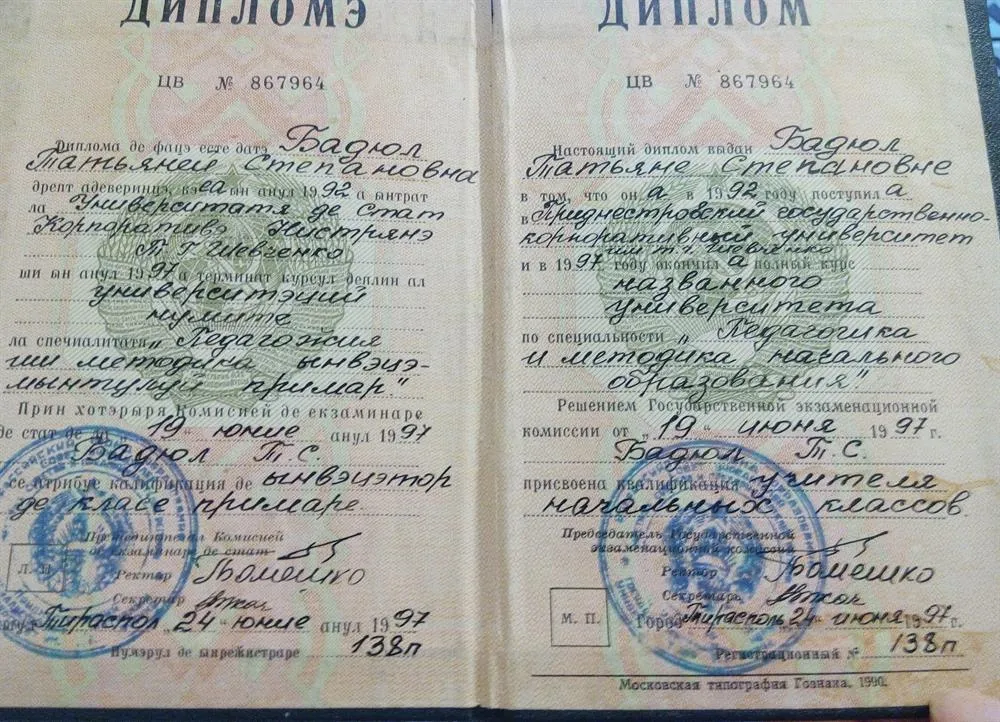 ДИПЛОМЭ
ЦВ № 867964
Диплома де фацэ есте датэ Бадюл
Татьяней Степановна
дрепт адеверинцэ, кэ еа ын анул 1992 а ынтрат
ла Университатя де Стат
Корпоративэ Нистрянэ
Т Г Шевченко
ши ын анул 1997 а терминат курсул деплин ал
университэций
нумите
ла спечиалитатя „Педагожия
ши методика ынвэцэ-
мынтулуй примар"
Прин хотэрыря Комисией де екзаминаре
де стат де ла „19" юние анул 1997
Бадюл Т. С.
се атрибуе калификация де ынвэцэтор
де класе примаре
Прешединтеле Комисией
де екзаминаре де стат
Ректор Бомешко
Секретар
Тираспол „24" юние анул 1997
Нумэрул де ынрежистраре 138п
ДИПЛОМ
ЦВ № 867964
Настоящий диплом выдан Бадюл
Татьяне Степановне
в том, что он а в 1992 году поступил а
в Приднестровский государственно-
корпоративный университет
им. Т. Г. Шевченко
и в 1997 году окончил а полный курс
названного
университета
по специальности „Педагогика
и методика начального
образования"
Решением Государственной экзаменационной
комиссии от „19" июня 1997 г.
Бадюл Т. С.
присвоена квалификация учителя
начальных классов.
Председатель Государственной
экзаменационной комиссии
Ректор Бомешко
Секретарь
М. П.
Город Тирасполь 24 июня 1997 г.
Регистрационный № 138п
Московская типография Гознака. 1990.